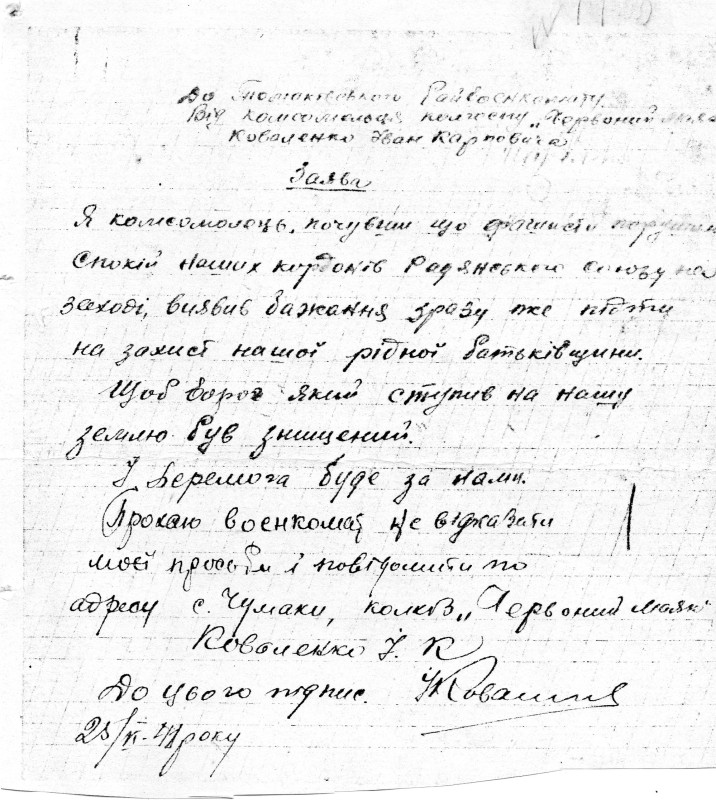 До Томаківського Райвоєнкомату
Від комсомольця колгоспу „Червоний маяк
Коваленко Іван Карповича
Заява
Я комсомолець, почувши що фашисти порушили
спокій наших кордонів Радянського союзу на
заході, виявив бажання зразу же підти
на захист нашої рідної батьківщини.
Щоб ворог який ступив на нашу
землю був знищений.
І Перемога буде за нами.
Прохаю воєнкомат не відказати
моєї прозьби і повідомити по
адресу с. Чумаки, колгосп „Червоний маяк"
Коваленко І. К
До цього підпис. ІКоваленко
23/VI-41 року